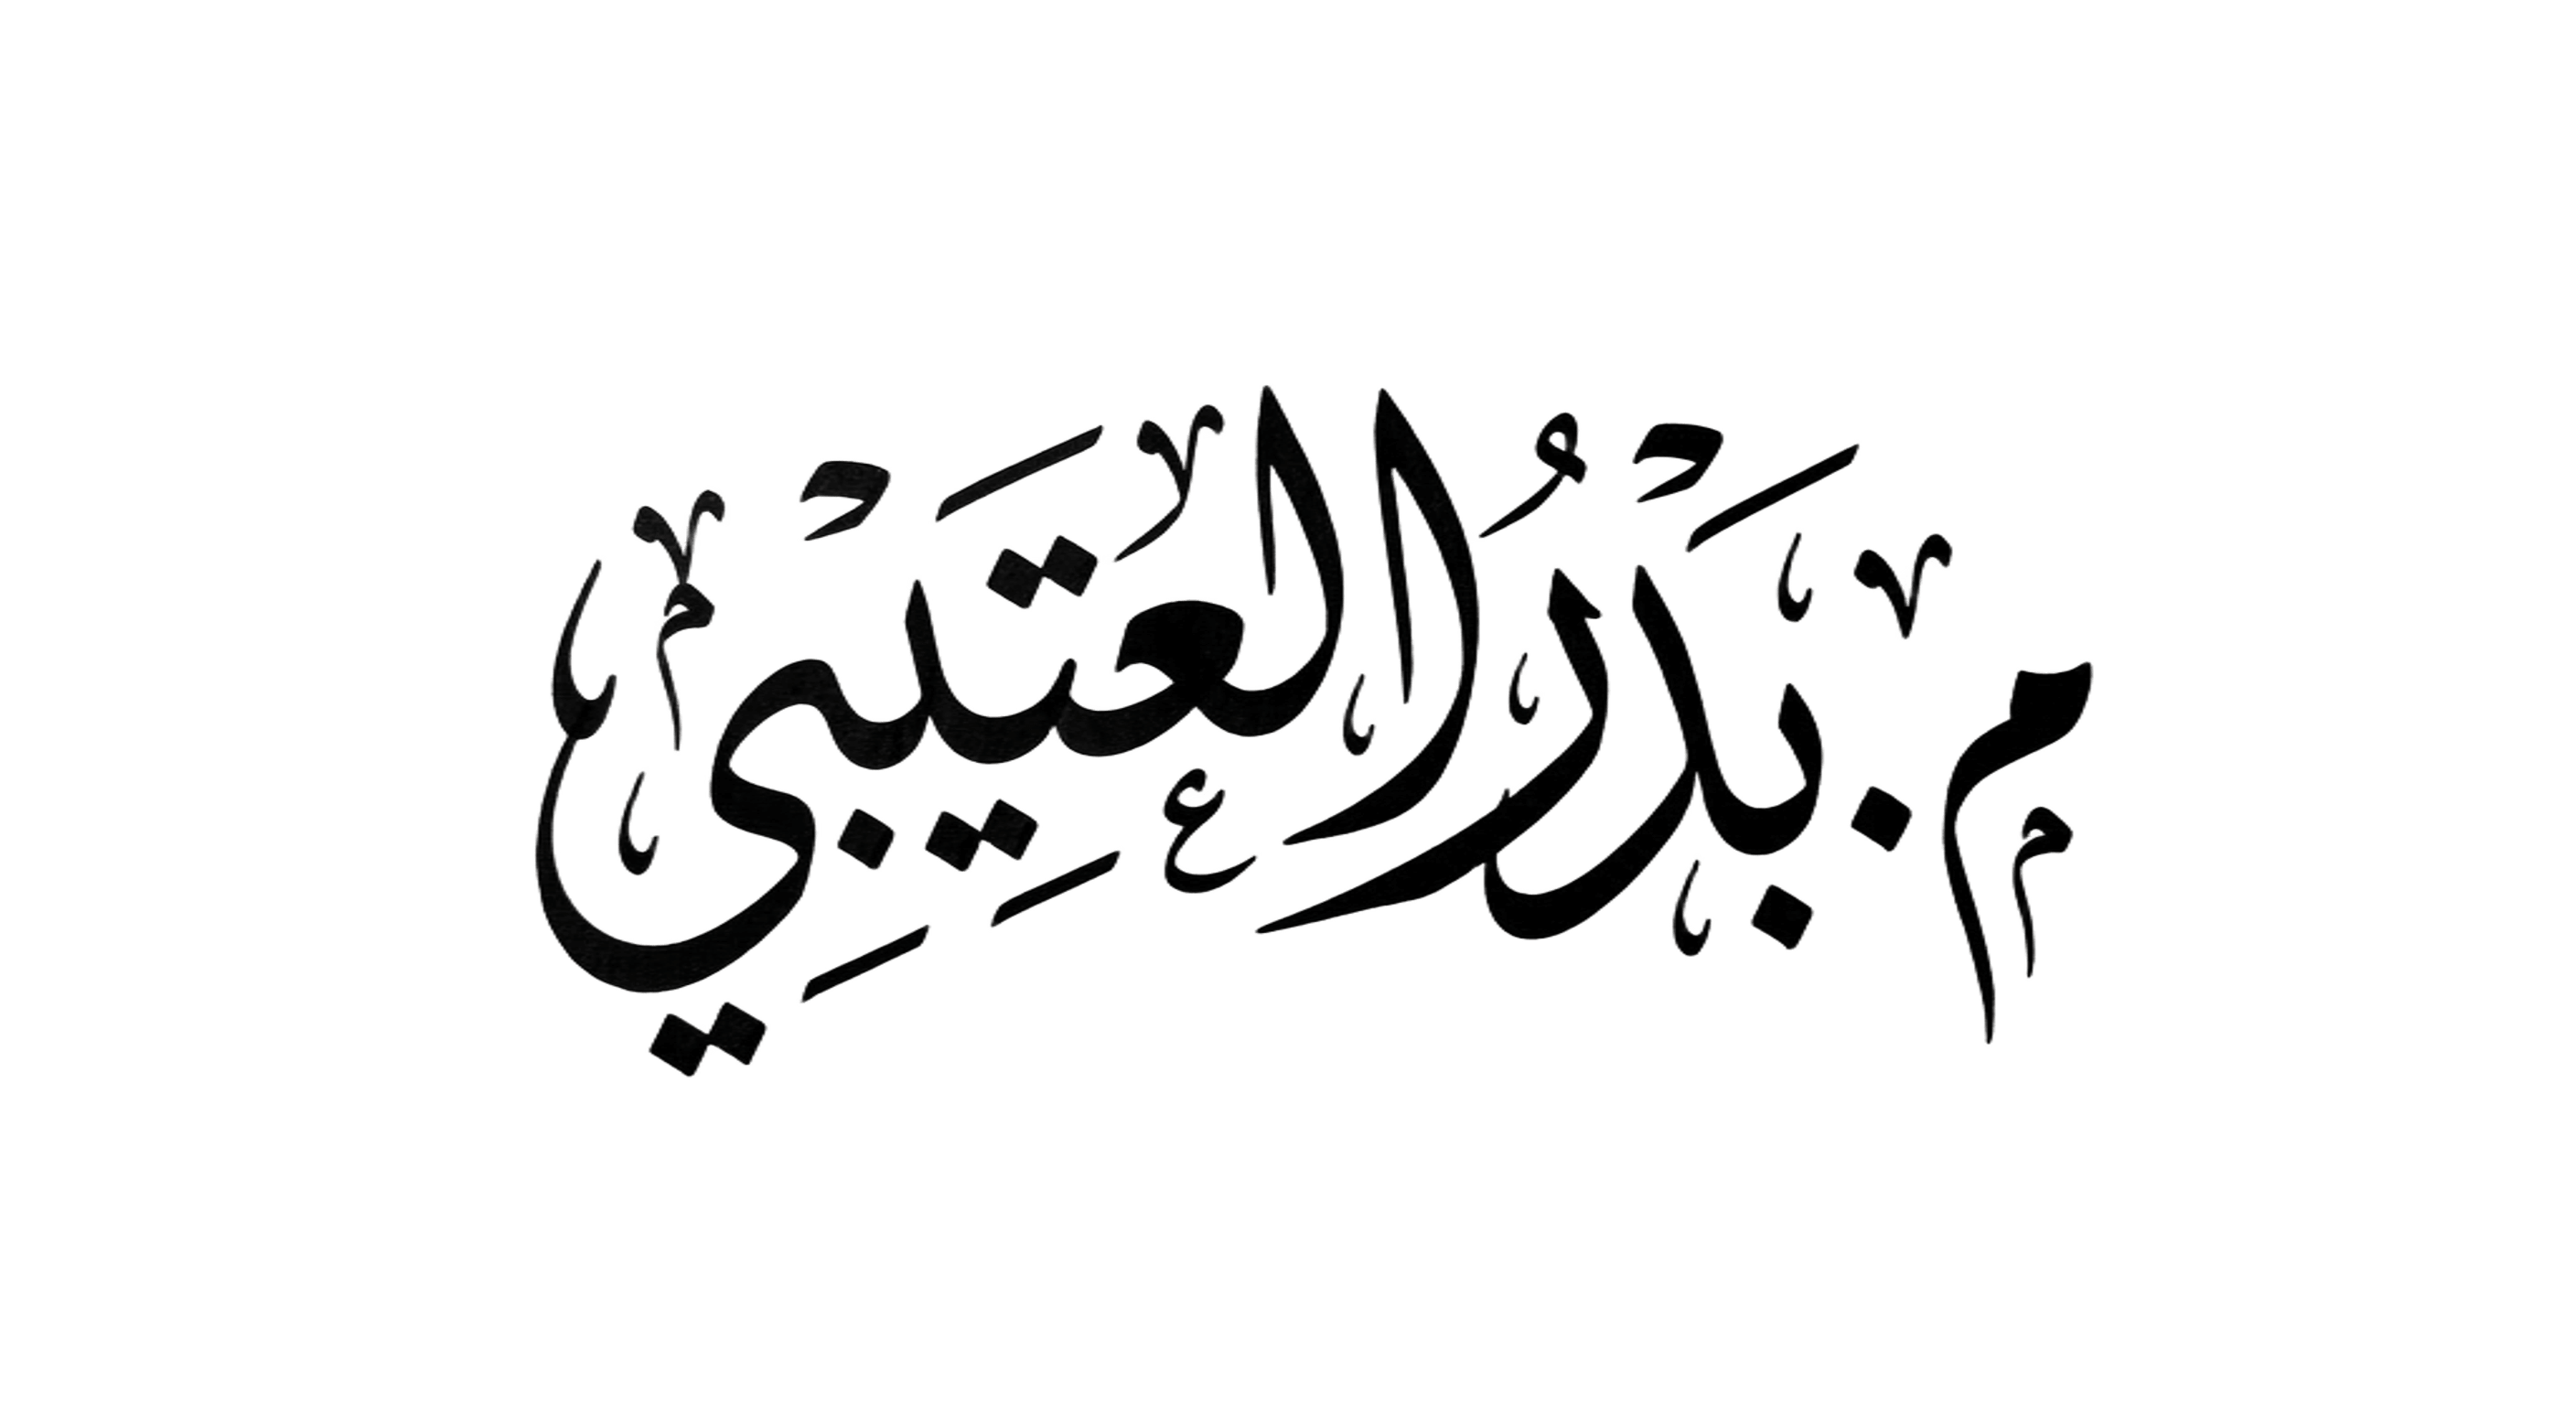 م. بَدْرُ العُتَيْبِي